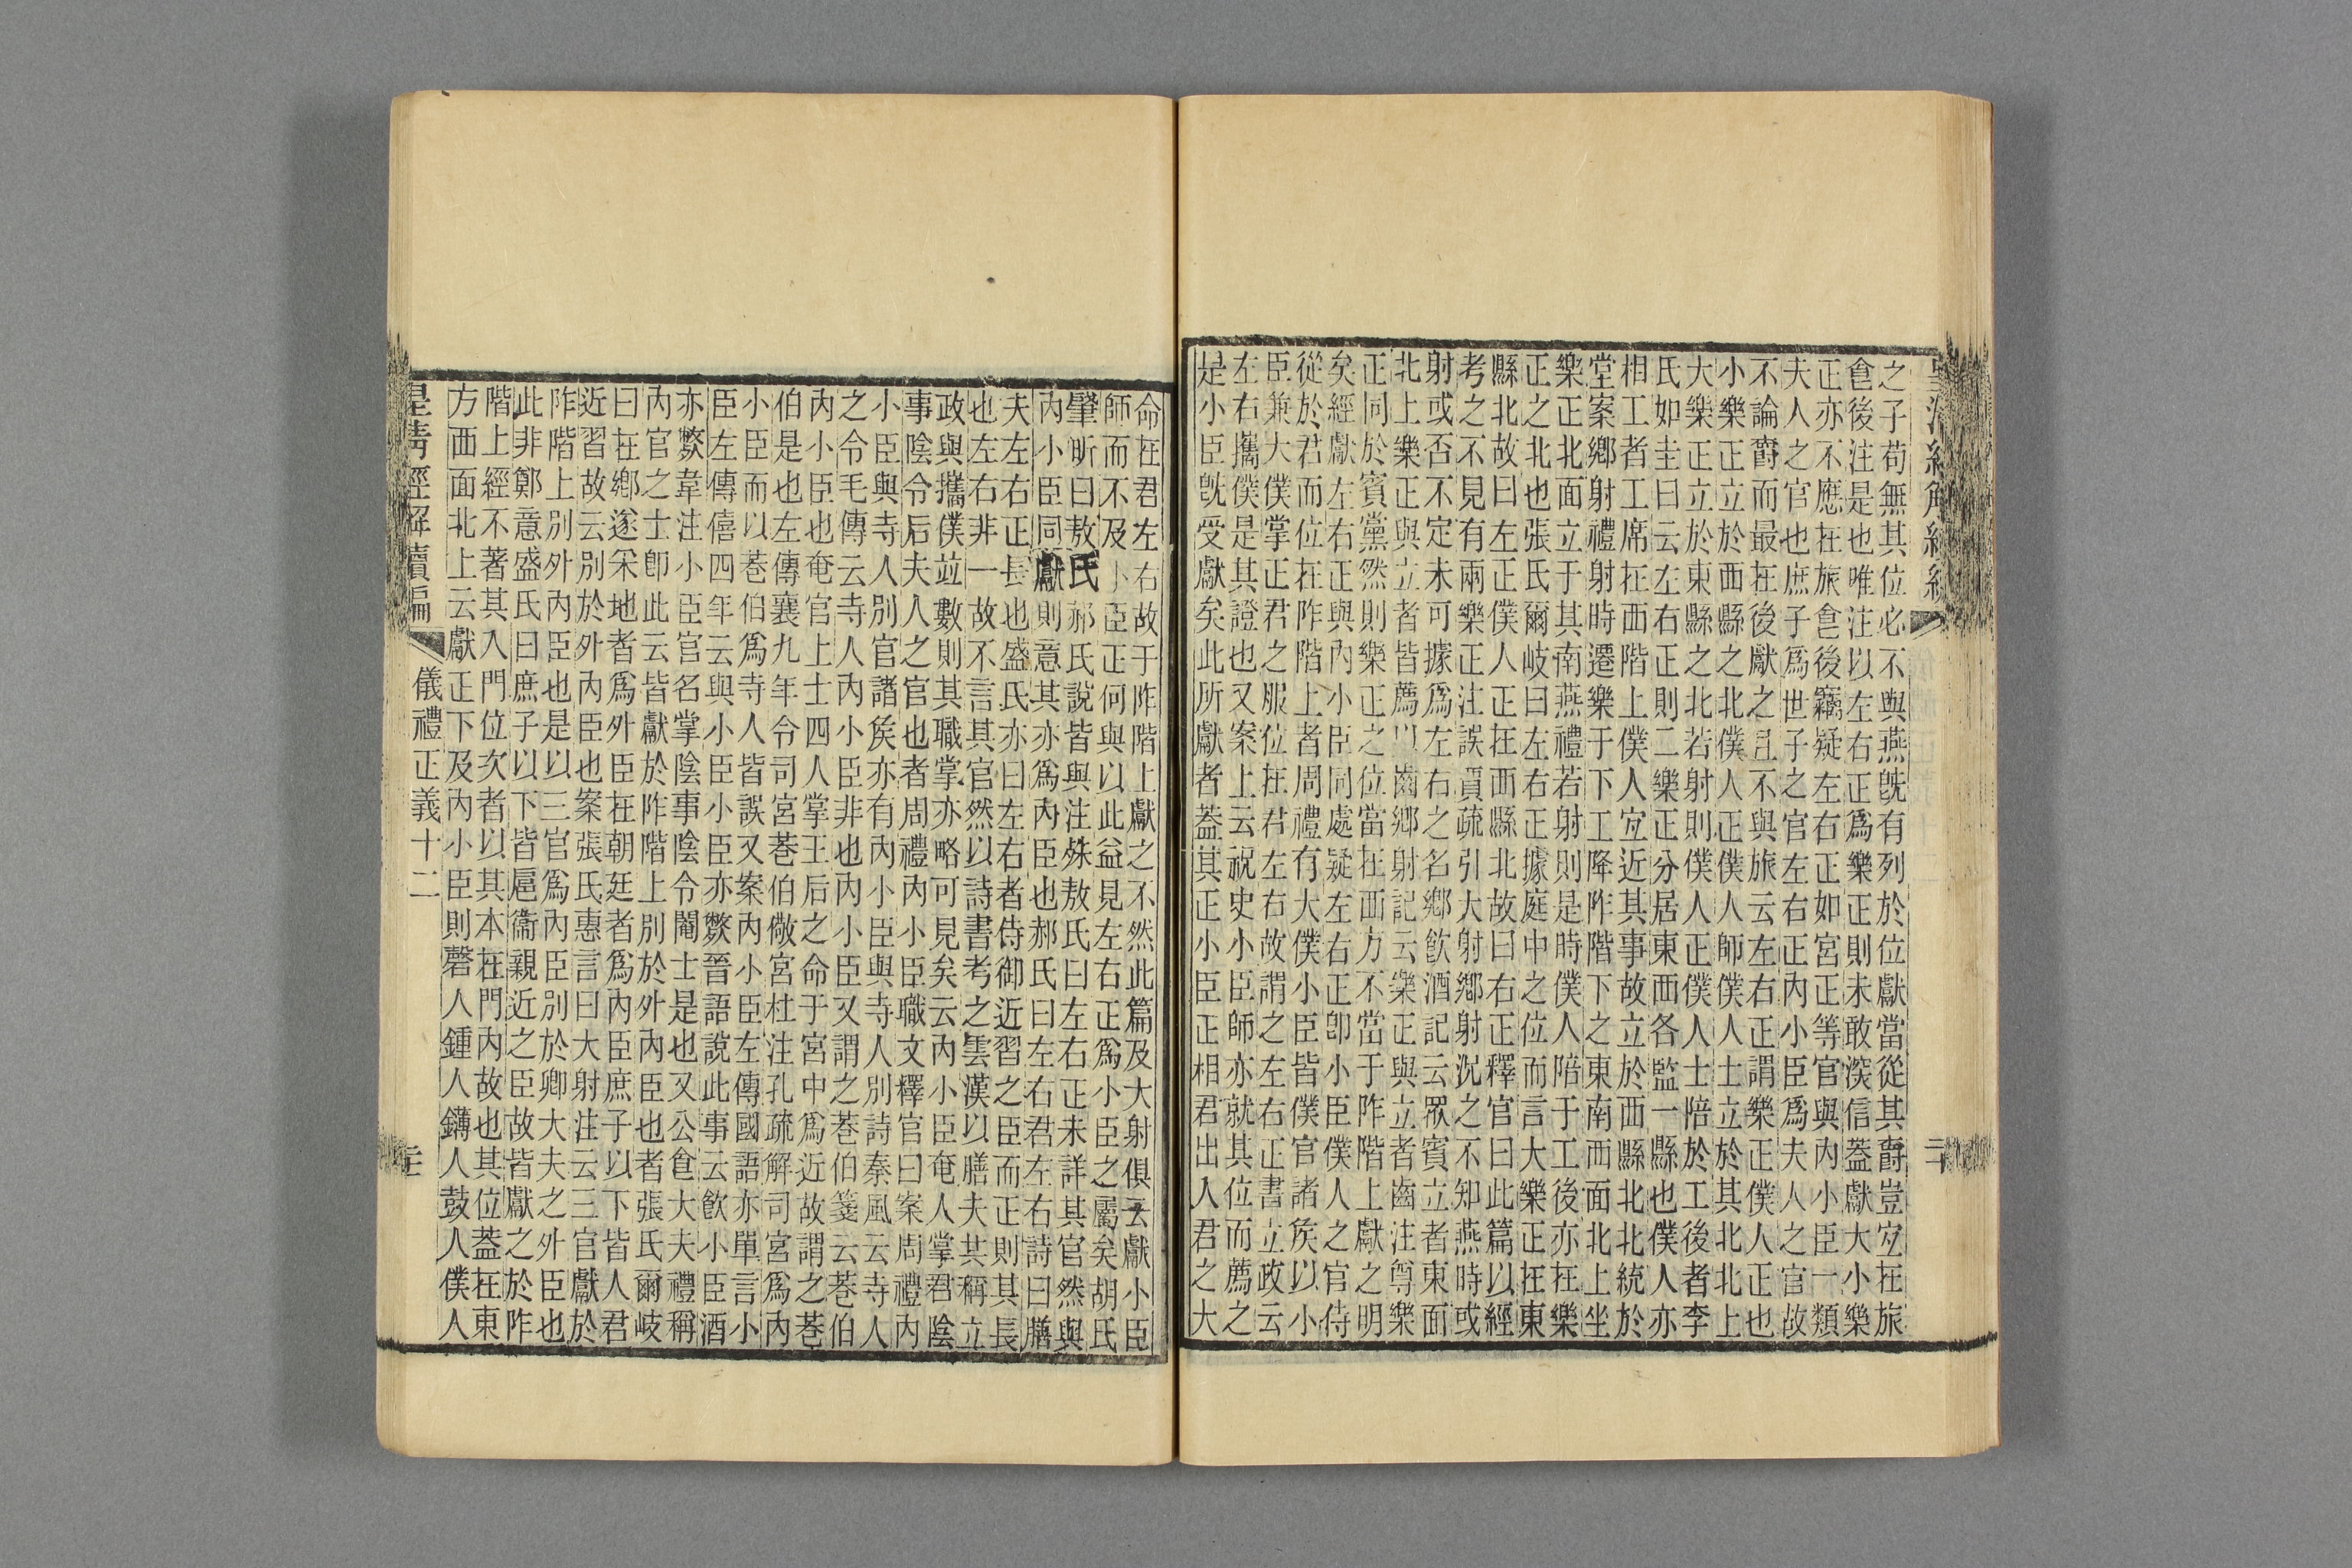 之子苟無其位必不與燕旣有列於位獻當從其爵豈宜在旅
食後注是也唯注以左右正爲樂正則未敢深信蓋獻大小樂
正亦不應在旅食後竊疑左右正如宮正等官與內小臣一類
夫人之官也庶子爲世子之官左右正內小臣爲夫人之官故
不論爵而最在後獻之且不與旅云左右正謂樂正僕人正也
小樂正立於西縣之北僕人正僕人師僕人士立於其北北上
大樂正立於東縣之北若射則僕人正僕人士陪於工後者李
氏如圭曰云左右正則二樂正分居東西各監一縣也僕人亦
相工者工席在西階上僕人宜近其事故立於西縣北北統於
堂案鄉射禮射時遷樂于下工降阼階下之東南西面北上坐
樂正北面立于其南燕禮若射則是時僕人陪于工後亦在樂
正之北也張氏爾岐曰左右正據庭中之位而言大樂正在東
縣北故曰左正僕人正在西縣北故曰右正釋官曰此篇以經
考之不見有兩樂正注誤賈疏引大射鄉射況之不知燕時或
射或否不定未可據爲左右之名鄉飲酒記云眾賓立者東面
北上樂正與立者皆薦以齒鄉射記云樂正與立者齒注尊樂
正同於賓黨然則樂正之位當在西方不當于阼階上獻之明
矣經獻左右正與內小臣同處疑左右正卽小臣僕人之官侍
從於君而位在阼階上者周禮有大僕小臣皆僕官諸矦以小
臣兼大僕掌正君之服位在君左右故謂之左右正書立政云
左右攜僕是其證也又案上云祝史小臣師亦就其位而薦之
是小臣旣受獻矣此所獻者蓋其正小臣正相君出入君之大
命在君左右故于阼階上獻之不然此篇及大射俱云獻小臣
師而不及小臣正何與以此益見左右正爲小臣之屬矣胡氏
肇昕曰敖氏郝氏說皆與注殊敖氏曰左右正未詳其官然與
內小臣同獻則意其亦爲內臣也郝氏曰左右君左右詩曰膳
夫左右正長也盛氏亦曰左右者侍御近習之臣而正則其長
也左右非一故不言其官然以詩書考之雲漢以膳夫共稱立
政與攜僕竝數則其職掌亦略可見矣云內小臣奄人掌君陰
事陰令后夫人之官也者周禮內小臣職文釋官曰案周禮內
小臣與寺人別官諸矦亦有內小臣與寺人別詩秦風云寺人
之令毛傳云寺人內小臣非也內小臣又謂之巷伯箋云巷伯
內小臣也奄官上士四人掌王后之命于宮中爲近故謂之巷
伯是也左傳襄九年令司宮巷伯儆宮杜注孔疏解司宮爲內
小臣而以巷伯爲寺人皆誤又案內小臣左傳國語亦單言小
臣左傳僖四年云與小臣小臣亦斃晉語說此事云飲小臣酒
亦斃韋注小臣官名掌陰事陰令閹士是也又公食大夫禮稱
內官之士卽此云皆獻於阼階上別於外內臣也者張氏爾岐
曰在鄉遂采地者爲外臣在朝廷者爲內臣庶子以下皆人君
近習故云別於外內臣也案張氏惠言曰大射注云三官獻於
阼階上別外內臣也是以三官爲內臣別於卿大夫之外臣也
此非鄭意盛氏曰庶子以下皆扈衞親近之臣故皆獻之於阼
階上經不著其入門位次者以其本在門內故也其位蓋在東
方西面北上云獻正下及內小臣則磬人鍾人鏄人鼓人僕人
皇清經解續編
儀禮正義十二